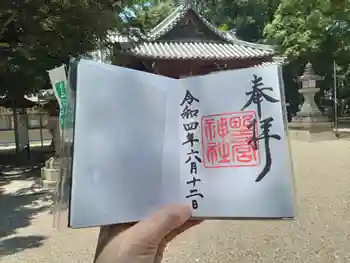 奉拝
野宮
神社
令和四年六月十二日